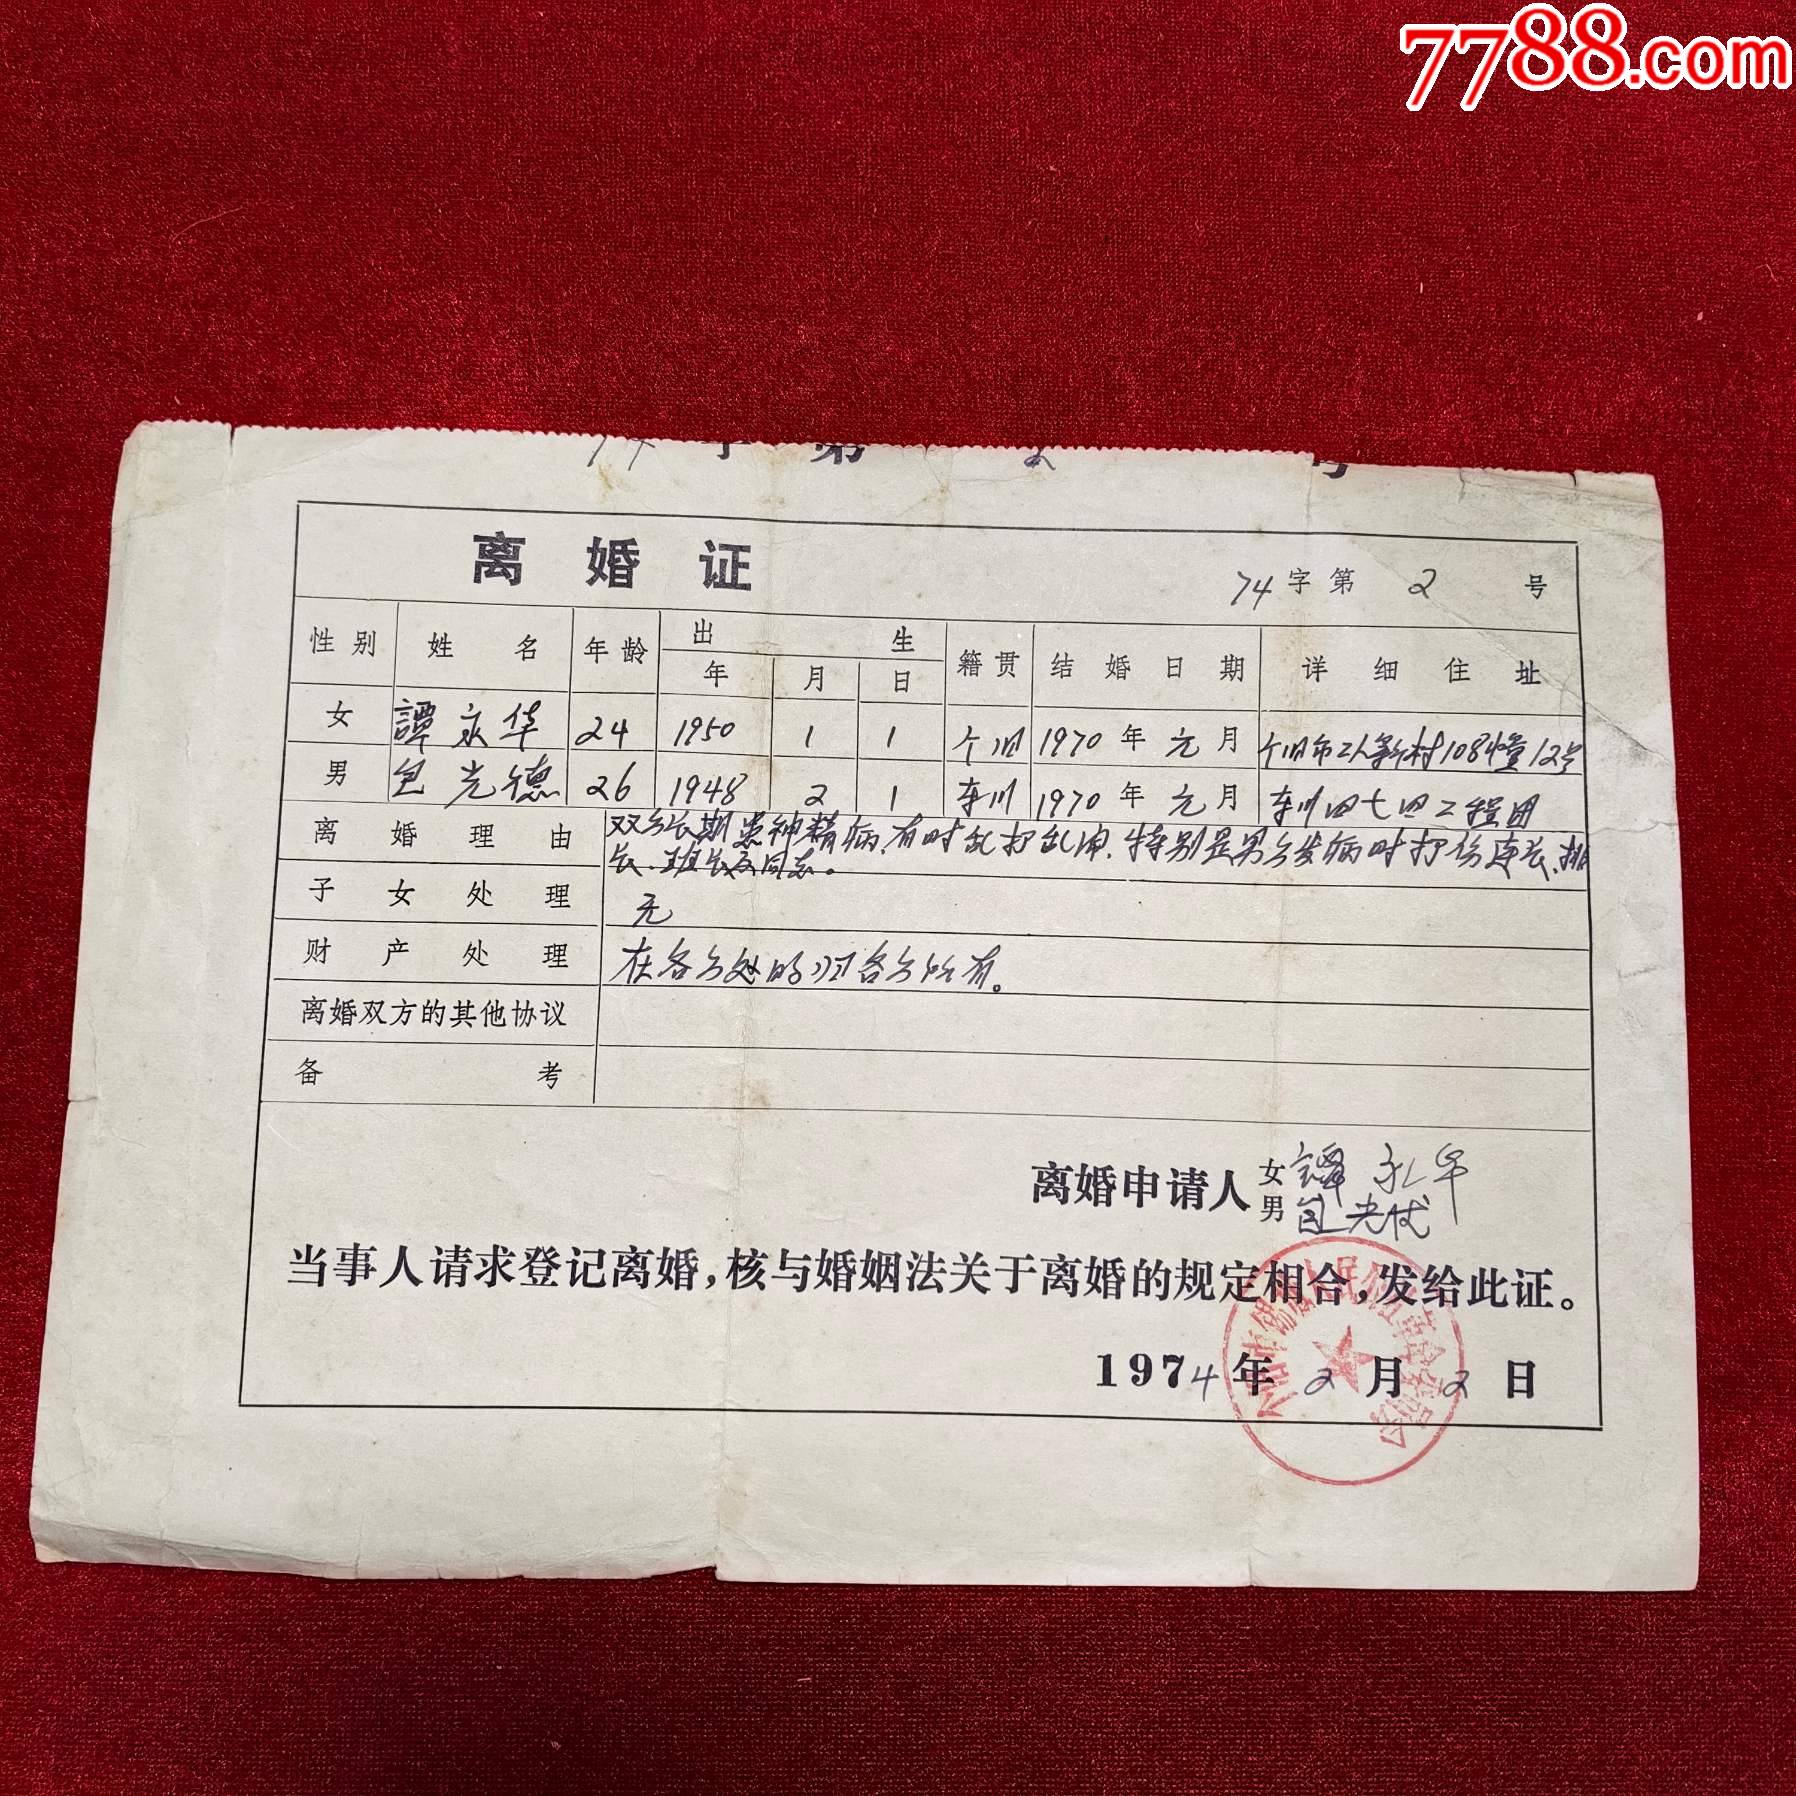 7788.com
74字第 2 号
离婚证
74字第 2 号
性别 姓名 年龄 出生 年 月 日 籍贯 结婚日期 详细住址
女 譚永华 24 1950 1 1 个旧 1970年元月 个旧市工人新村108幢12号
男 包光德 26 1948 2 1 东川 1970年元月 东川四七四工程团
离婚理由 双方长期患神精病,有时乱打乱闹,特别是男方发病时打伤连长、排
长、班长及同志。
子女处理 无
财产处理 在各方处的归各方所有。
离婚双方的其他协议
备考
离婚申请人 女 譚永华
男 包光德
当事人请求登记离婚,核与婚姻法关于离婚的规定相合,发给此证。
1974年2月2日